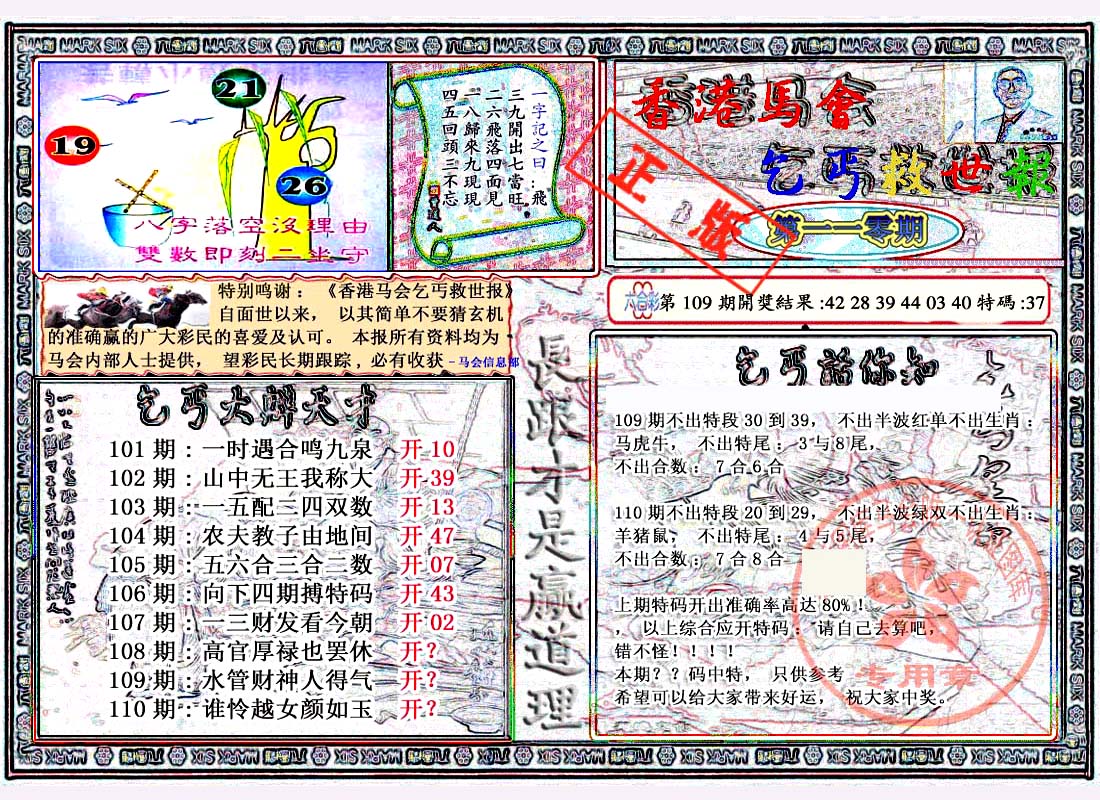 MARK SIX
21
19
26
八字落空没理由
雙數即刻二坐守
一字記之曰：飛
三九開出七當旺
二六飛落四面見
一八歸來九現現
四五回頭三不忘
香港馬會
乞丐救世報
正版
第一一零期
特别鸣谢：《香港马会乞丐救世报》
自面世以来， 以其简单不要猜玄机
的准确赢的广大彩民的喜爱及认可。 本报所有资料均为
马会内部人士提供， 望彩民长期跟踪，必有收获－马会信息部
六合彩 第 109 期開獎結果 :42 28 39 44 03 40 特碼 :37
長跟才是贏道理
101 期：一时遇合鸣九泉 开 10
102 期：山中无王我称大 开 39
103 期：一五配二四双数 开 13
104 期：农夫教子由地间 开 47
105 期：五六合三合二数 开 07
106 期：向下四期搏特码 开 43
107 期：一三财发看今朝 开 02
108 期：高官厚禄也罢休 开？
109 期：水管财神人得气 开？
110 期：谁怜越女颜如玉 开？
乞丐話你知
109 期不出特段 30 到 39， 不出半波红单不出生肖：
马虎牛， 不出特尾： 3 与 8尾，
不出合数： 7 合 6 合
110 期不出特段 20 到 29， 不出半波绿双不出生肖：
羊猪鼠， 不出特尾： 4 与 5 尾，
不出合数： 7 合 8 合
上期特码开出准确率高达 80%！
， 以上综合应开特码： 请自己去算吧，
错不怪！！！！
本期？？码中特， 只供参考
希望可以给大家带来好运， 祝大家中奖。
专用章